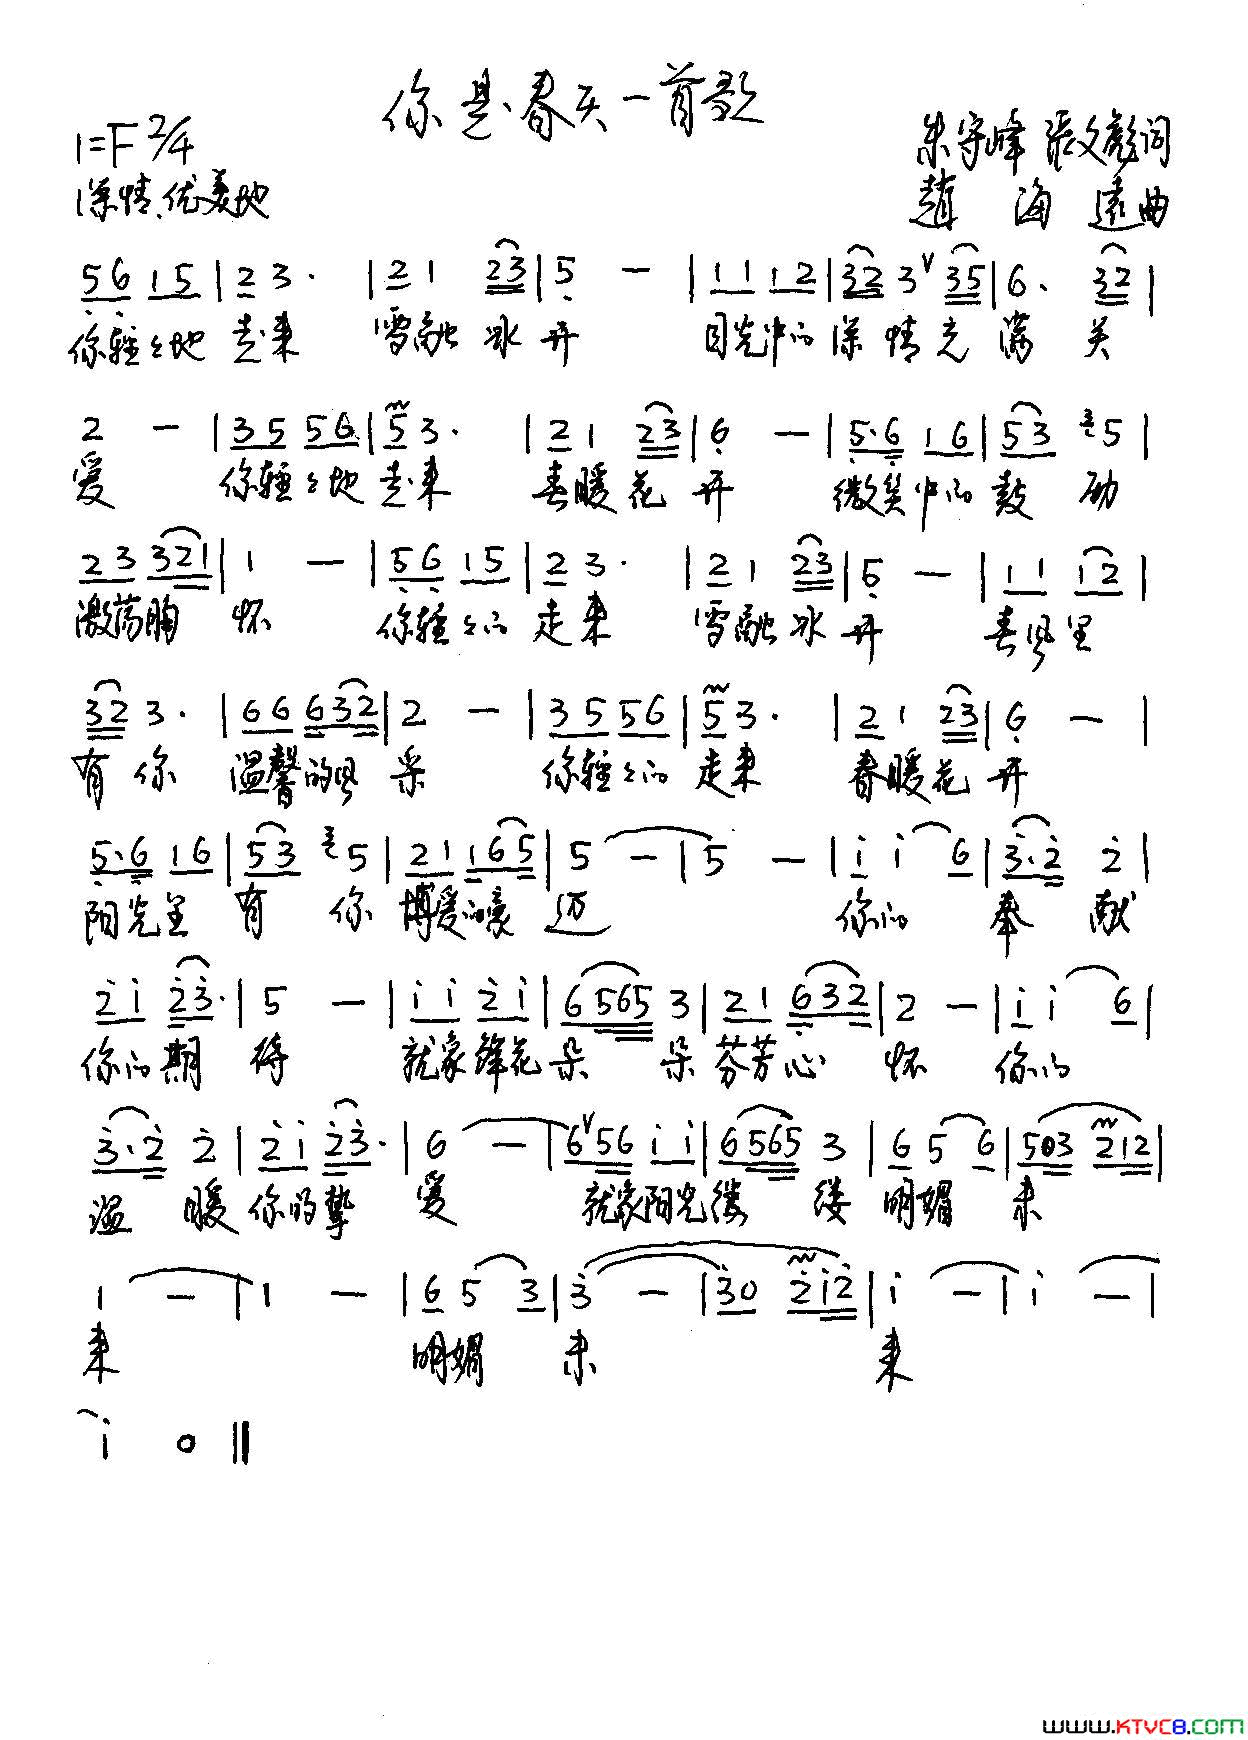 你是春天一首歌
1=F 2/4
朱守峰 張文彪词
深情、优美地
趙 海 遠曲
5 6 1 5 | 2 3 · | 2 1 2 3 | 5 — | 1 1 1 2 | 3 2 3 V 3 5 | 6 · 3 2 |
你轻々地 走来 雪融 冰 开 目光中的 深 情 充 满 关
2 — | 3 5 5 6 | 5 3 · | 2 1 2 3 | 6 — | 5 · 6 1 6 | 5 3 3 5 |
爱 你轻々地 走来 春暖 花 开 微笑中的 鼓 励
2 3 3 2 1 | 1 — | 5 6 1 5 | 2 3 · | 2 1 2 3 | 5 — | 1 1 1 2 |
激荡胸 怀 你轻々的 走来 雪融 冰 开 春风里
3 2 3 · | 6 6 6 3 2 | 2 — | 3 5 5 6 | 5 3 · | 2 1 2 3 | 6 — |
有 你 温馨的风 采 你轻々的 走来 春暖 花 开
5 · 6 1 6 | 5 3 3 5 | 2 1 1 6 5 | 5 — | 5 — | i i 6 | 3 · 2 2 |
阳光里 有 你 博爱的豪 迈 你的 奉 献
2 i 2 3 · | 5 — | i i 2 i | 6 5 6 5 3 | 2 1 6 3 2 | 2 — | i i 6 |
你的期 待 就象鲜花 朵 朵 芬芳心 怀 你的
3 · 2 2 | 2 i 2 3 · | 6 — | 6 V 5 6 i i | 6 5 6 5 3 | 6 5 6 | 5 0 3 2 1 2 |
温 暖 你的挚 爱 就象阳光缕 缕 明媚 未
1 — | 1 — | 6 5 3 | 3 — | 3 0 2 i 2 | i — | i — |
来 明媚 未 来
i 0 ‖
www.KTVC8.com